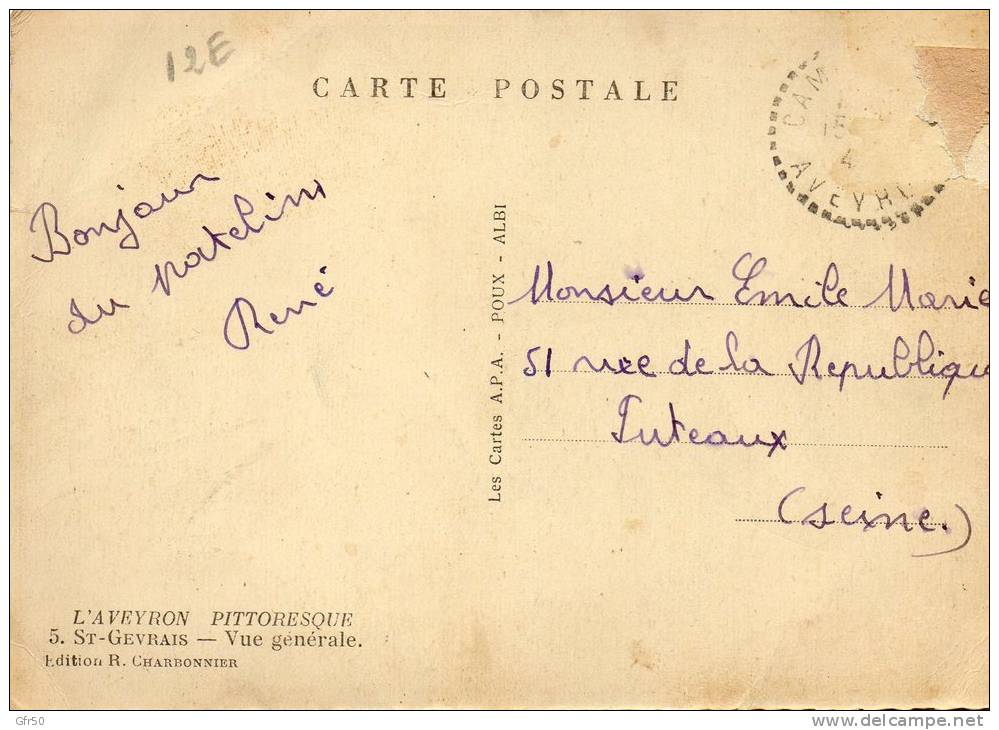 12E
CARTE POSTALE
CAM
15
4
AVEYRO
Bonjour
du
René
Les Cartes A.P.A. - POUX - ALBI
Monsieur Emile Marie
51 rue de la Republique
Puteaux
(seine.)
L'AVEYRON PITTORESQUE
5. ST-GEVRAIS — Vue générale.
Edition R. CHARBONNIER
Gfr50
delcampe.net